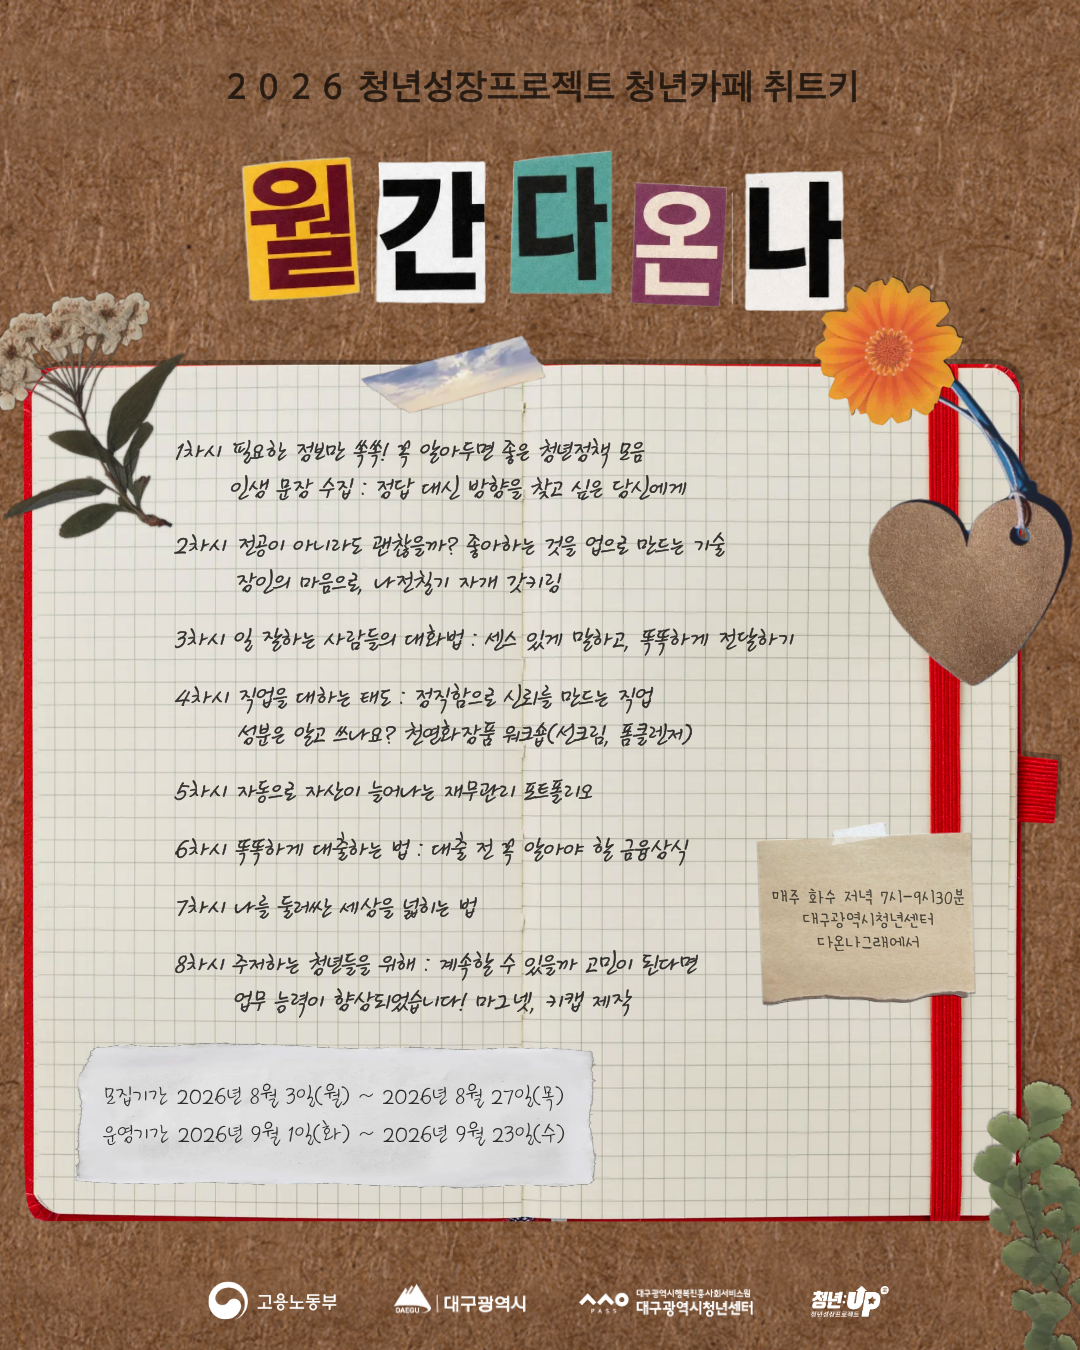 2026 청년성장프로젝트 청년카페 취트키
월간다온나
1차시 필요한 정보만 쏙쏙! 꼭 알아두면 좋은 청년정책 모음
인생 문장 수집 : 정답 대신 방향을 찾고 싶은 당신에게
2차시 전공이 아니라도 괜찮을까? 좋아하는 것을 업으로 만드는 기술
장인의 마음으로, 나전칠기 자개 갓키링
3차시 일 잘하는 사람들의 대화법 : 센스 있게 말하고, 똑똑하게 전달하기
4차시 직업을 대하는 태도 : 정직함으로 신뢰를 만드는 직업
성분은 알고 쓰나요? 천연화장품 워크숍(선크림, 폼클렌저)
5차시 자동으로 자산이 늘어나는 재무관리 포트폴리오
6차시 똑똑하게 대출하는 법 : 대출 전 꼭 알아야 할 금융상식
7차시 나를 둘러싼 세상을 넓히는 법
8차시 주저하는 청년들을 위해 : 계속할 수 있을까 고민이 된다면
업무 능력이 향상되었습니다! 마그넷, 키캡 제작
매주 화수 저녁 7시-9시30분
대구광역시청년센터
다온나그래에서
모집기간 2026년 8월 3일(월) ~ 2026년 8월 27일(목)
운영기간 2026년 9월 1일(화) ~ 2026년 9월 23일(수)
고용노동부
DAEGU 대구광역시
PASS 대구광역시행복진흥사회서비스원
대구광역시청년센터
청년:UP
청년성장프로젝트